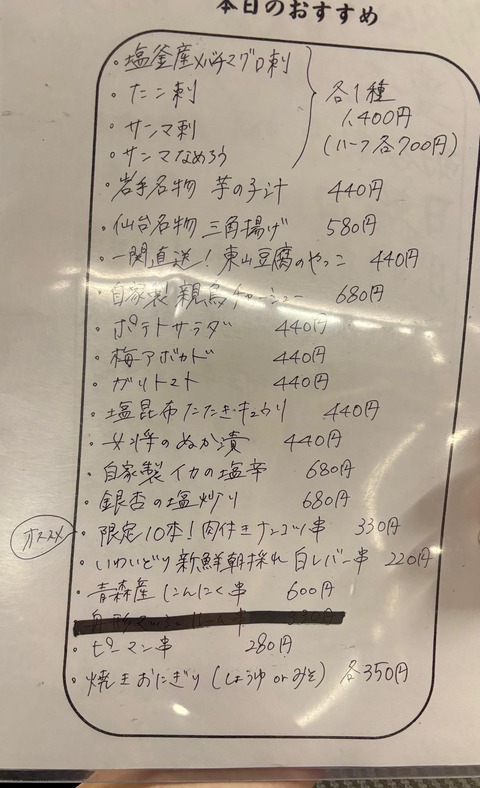 本日のおすすめ
・塩釜産メバチマグロ刺
・たこ刺
・サンマ刺
・サンマなめろう
各1種
1,400円
(ハーフ各700円)
・岩手名物 芋の子汁 440円
・仙台名物 三角揚げ 580円
・一関直送！東山豆腐のやっこ 440円
・自家製 親鳥チャーシュー 680円
・ポテトサラダ 440円
・梅アボカド 440円
・ガリトマト 440円
・塩昆布たたきキュウリ 440円
・女将のぬか漬 440円
・自家製イカの塩辛 680円
・銀杏の塩炒り 680円
オススメ ・限定10本！肉付きナンコツ串 330円
・いわいどり新鮮朝採れ 白レバー串 220円
・青森産 にんにく串 600円
・ピーマン串 280円
・焼きおにぎり (しょうゆ or みそ) 各350円